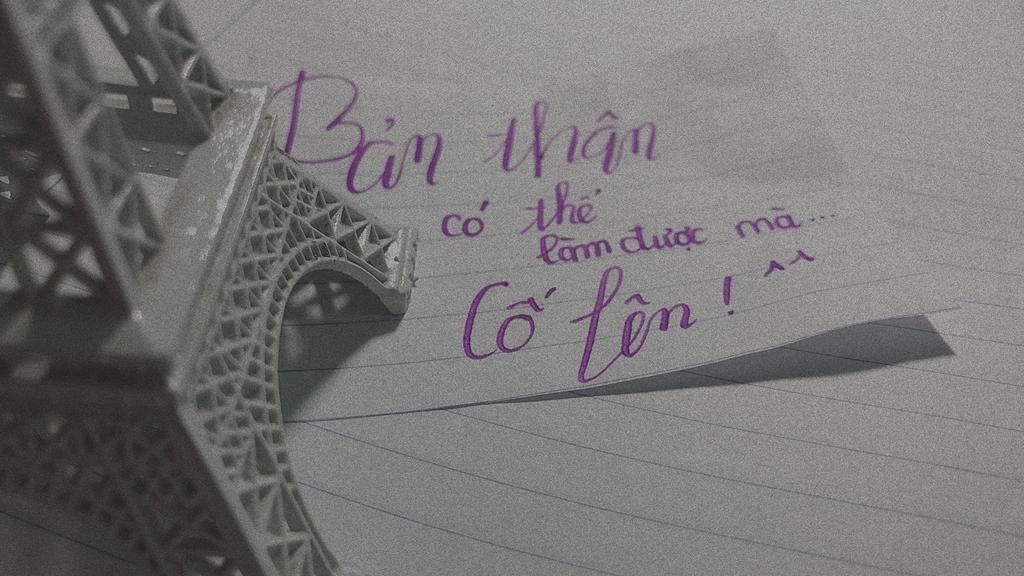 Bản thân
có thể
làm được mà...
Cố lên! ^^